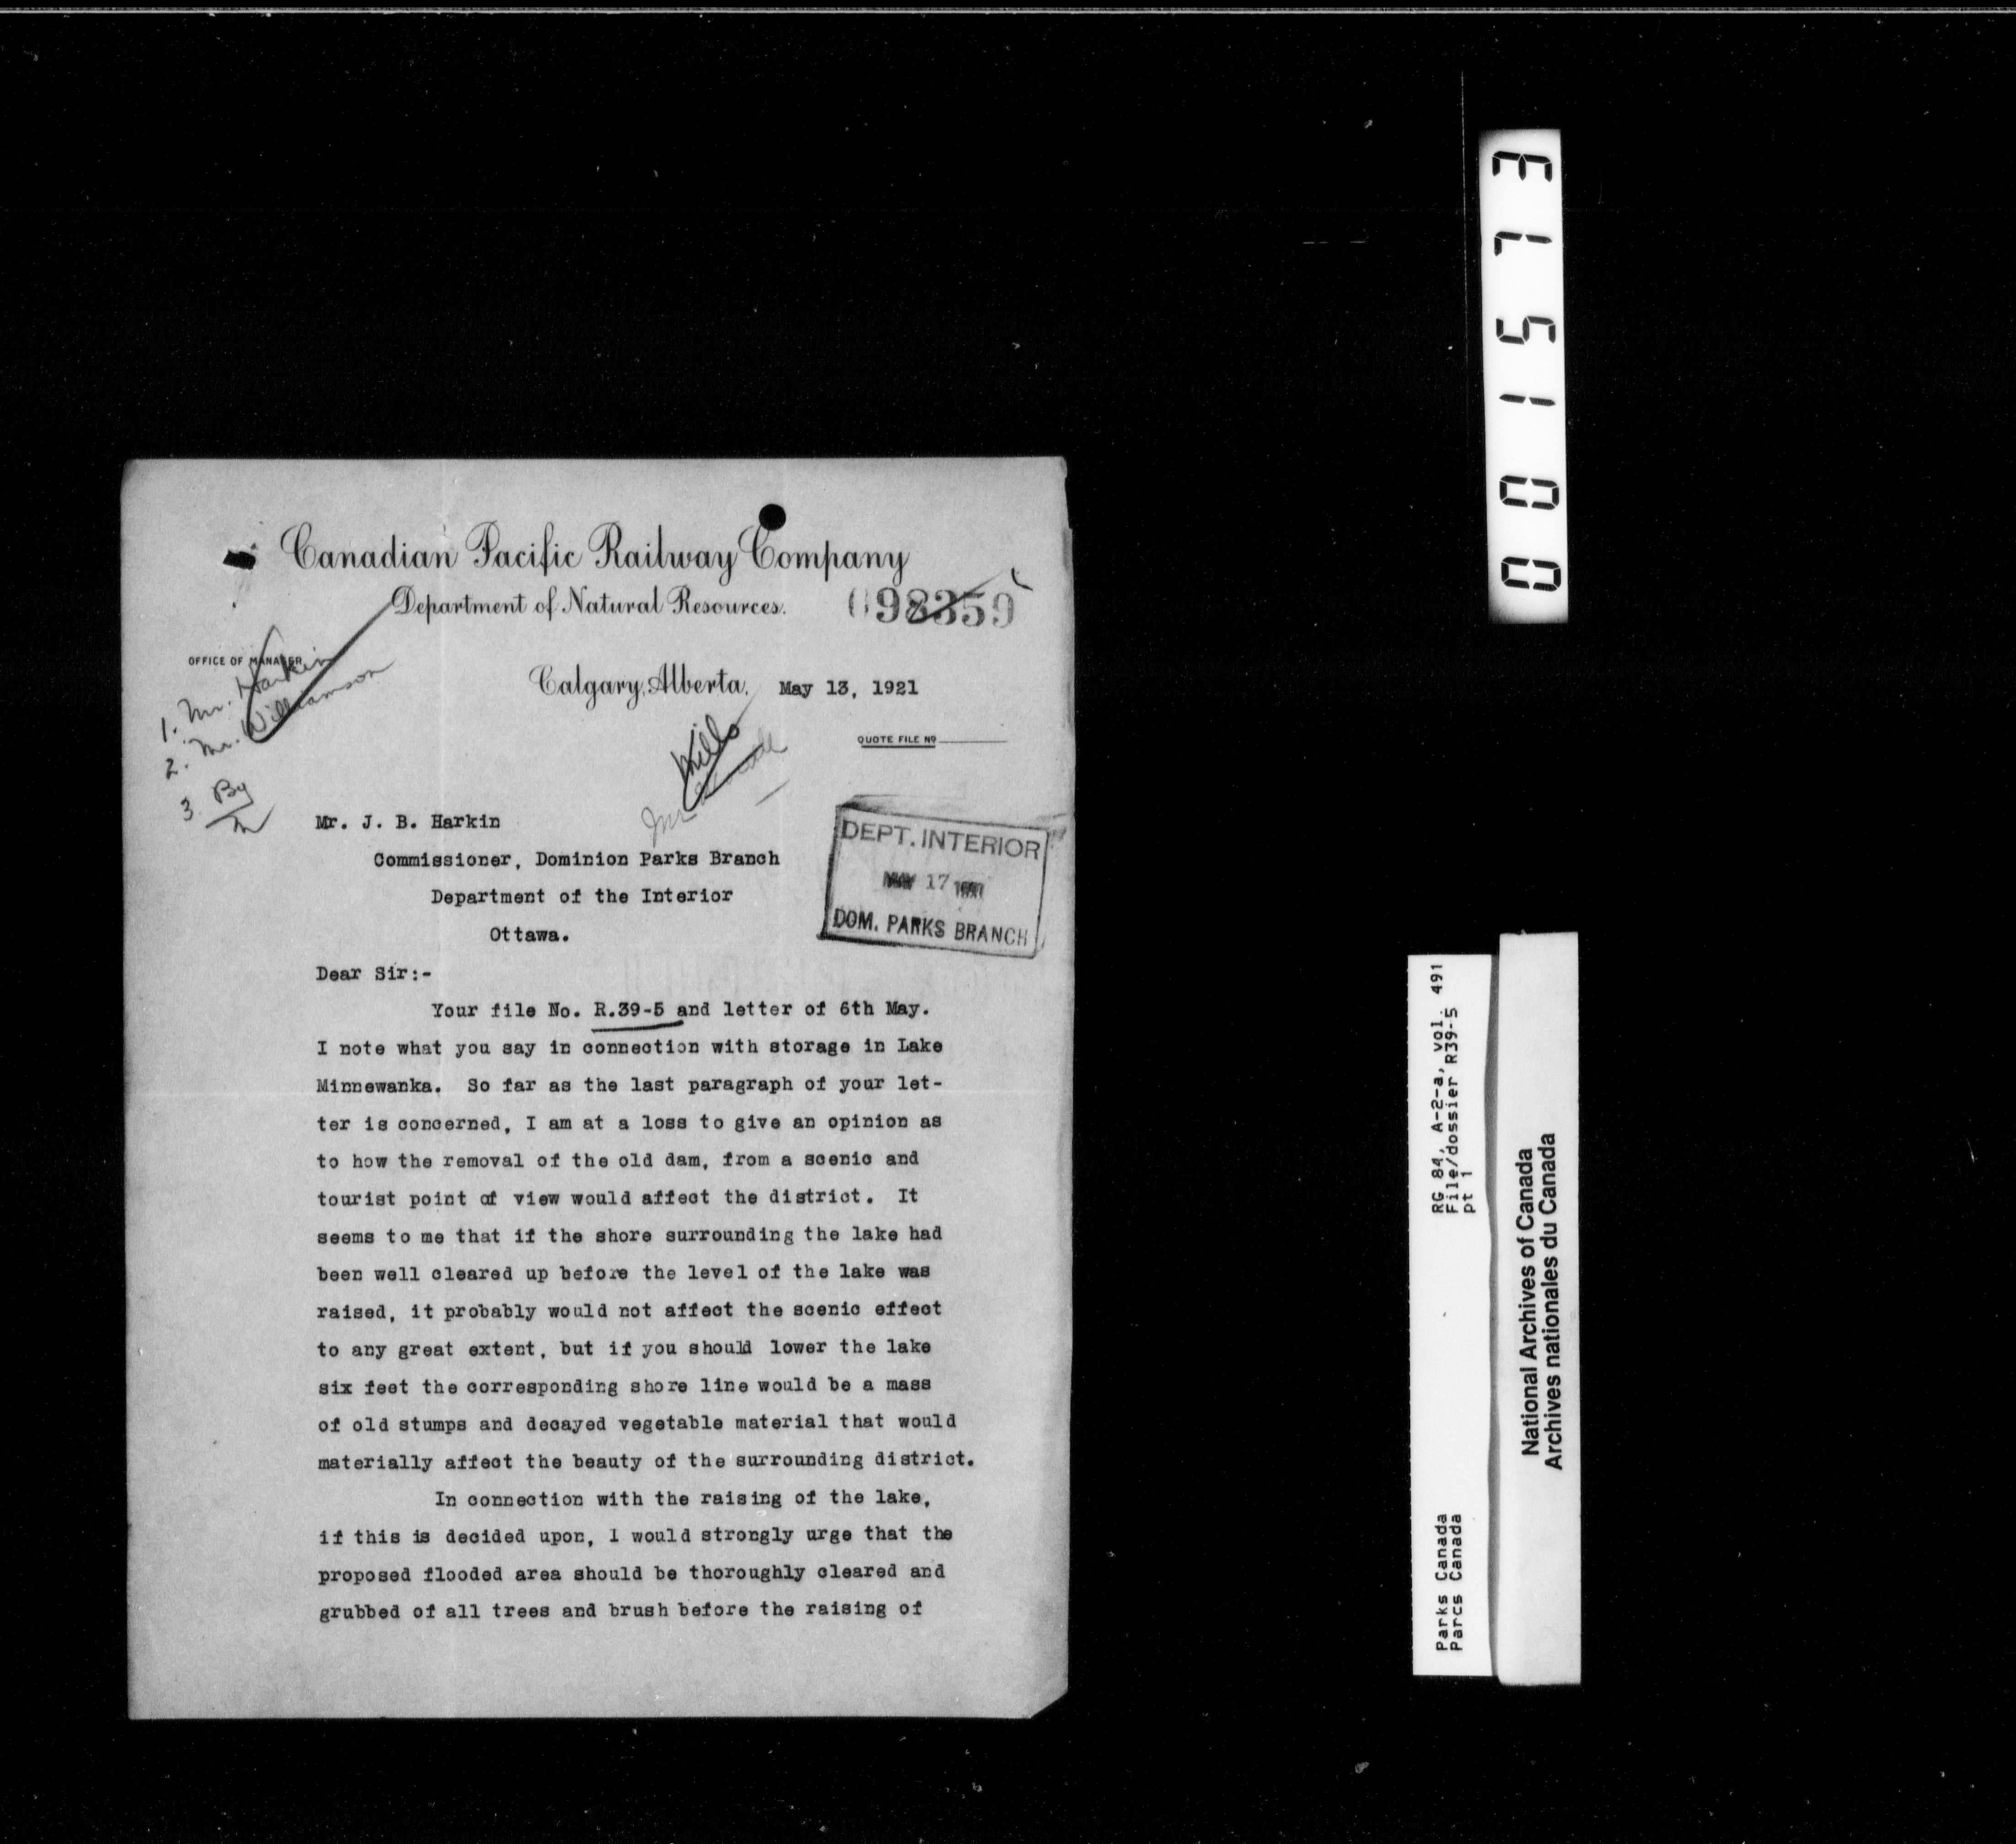 Canadian Pacific Railway Company
Department of Natural Resources.
098359
OFFICE OF MANAGER
Calgary, Alberta. May 13, 1921
1. Mr. Harkin
2. Mr. Williamson
3. By
Mills
Mr
QUOTE FILE NO
Mr. J. B. Harkin
Commissioner, Dominion Parks Branch
Department of the Interior
Ottawa.
DEPT. INTERIOR
MAY 17 1921
DOM. PARKS BRANCH
Dear Sir:-
Your file No. R.39-5 and letter of 6th May.
I note what you say in connection with storage in Lake
Minnewanka. So far as the last paragraph of your let-
ter is concerned, I am at a loss to give an opinion as
to how the removal of the old dam, from a scenic and
tourist point of view would affect the district. It
seems to me that if the shore surrounding the lake had
been well cleared up before the level of the lake was
raised, it probably would not affect the scenic effect
to any great extent, but if you should lower the lake
six feet the corresponding shore line would be a mass
of old stumps and decayed vegetable material that would
materially affect the beauty of the surrounding district.
In connection with the raising of the lake,
if this is decided upon, I would strongly urge that the
proposed flooded area should be thoroughly cleared and
grubbed of all trees and brush before the raising of
001513
RG 84, A-2-a, vol. 491
File/dossier R39-5
pt 1
Parks Canada
Parcs Canada
National Archives of Canada
Archives nationales du Canada